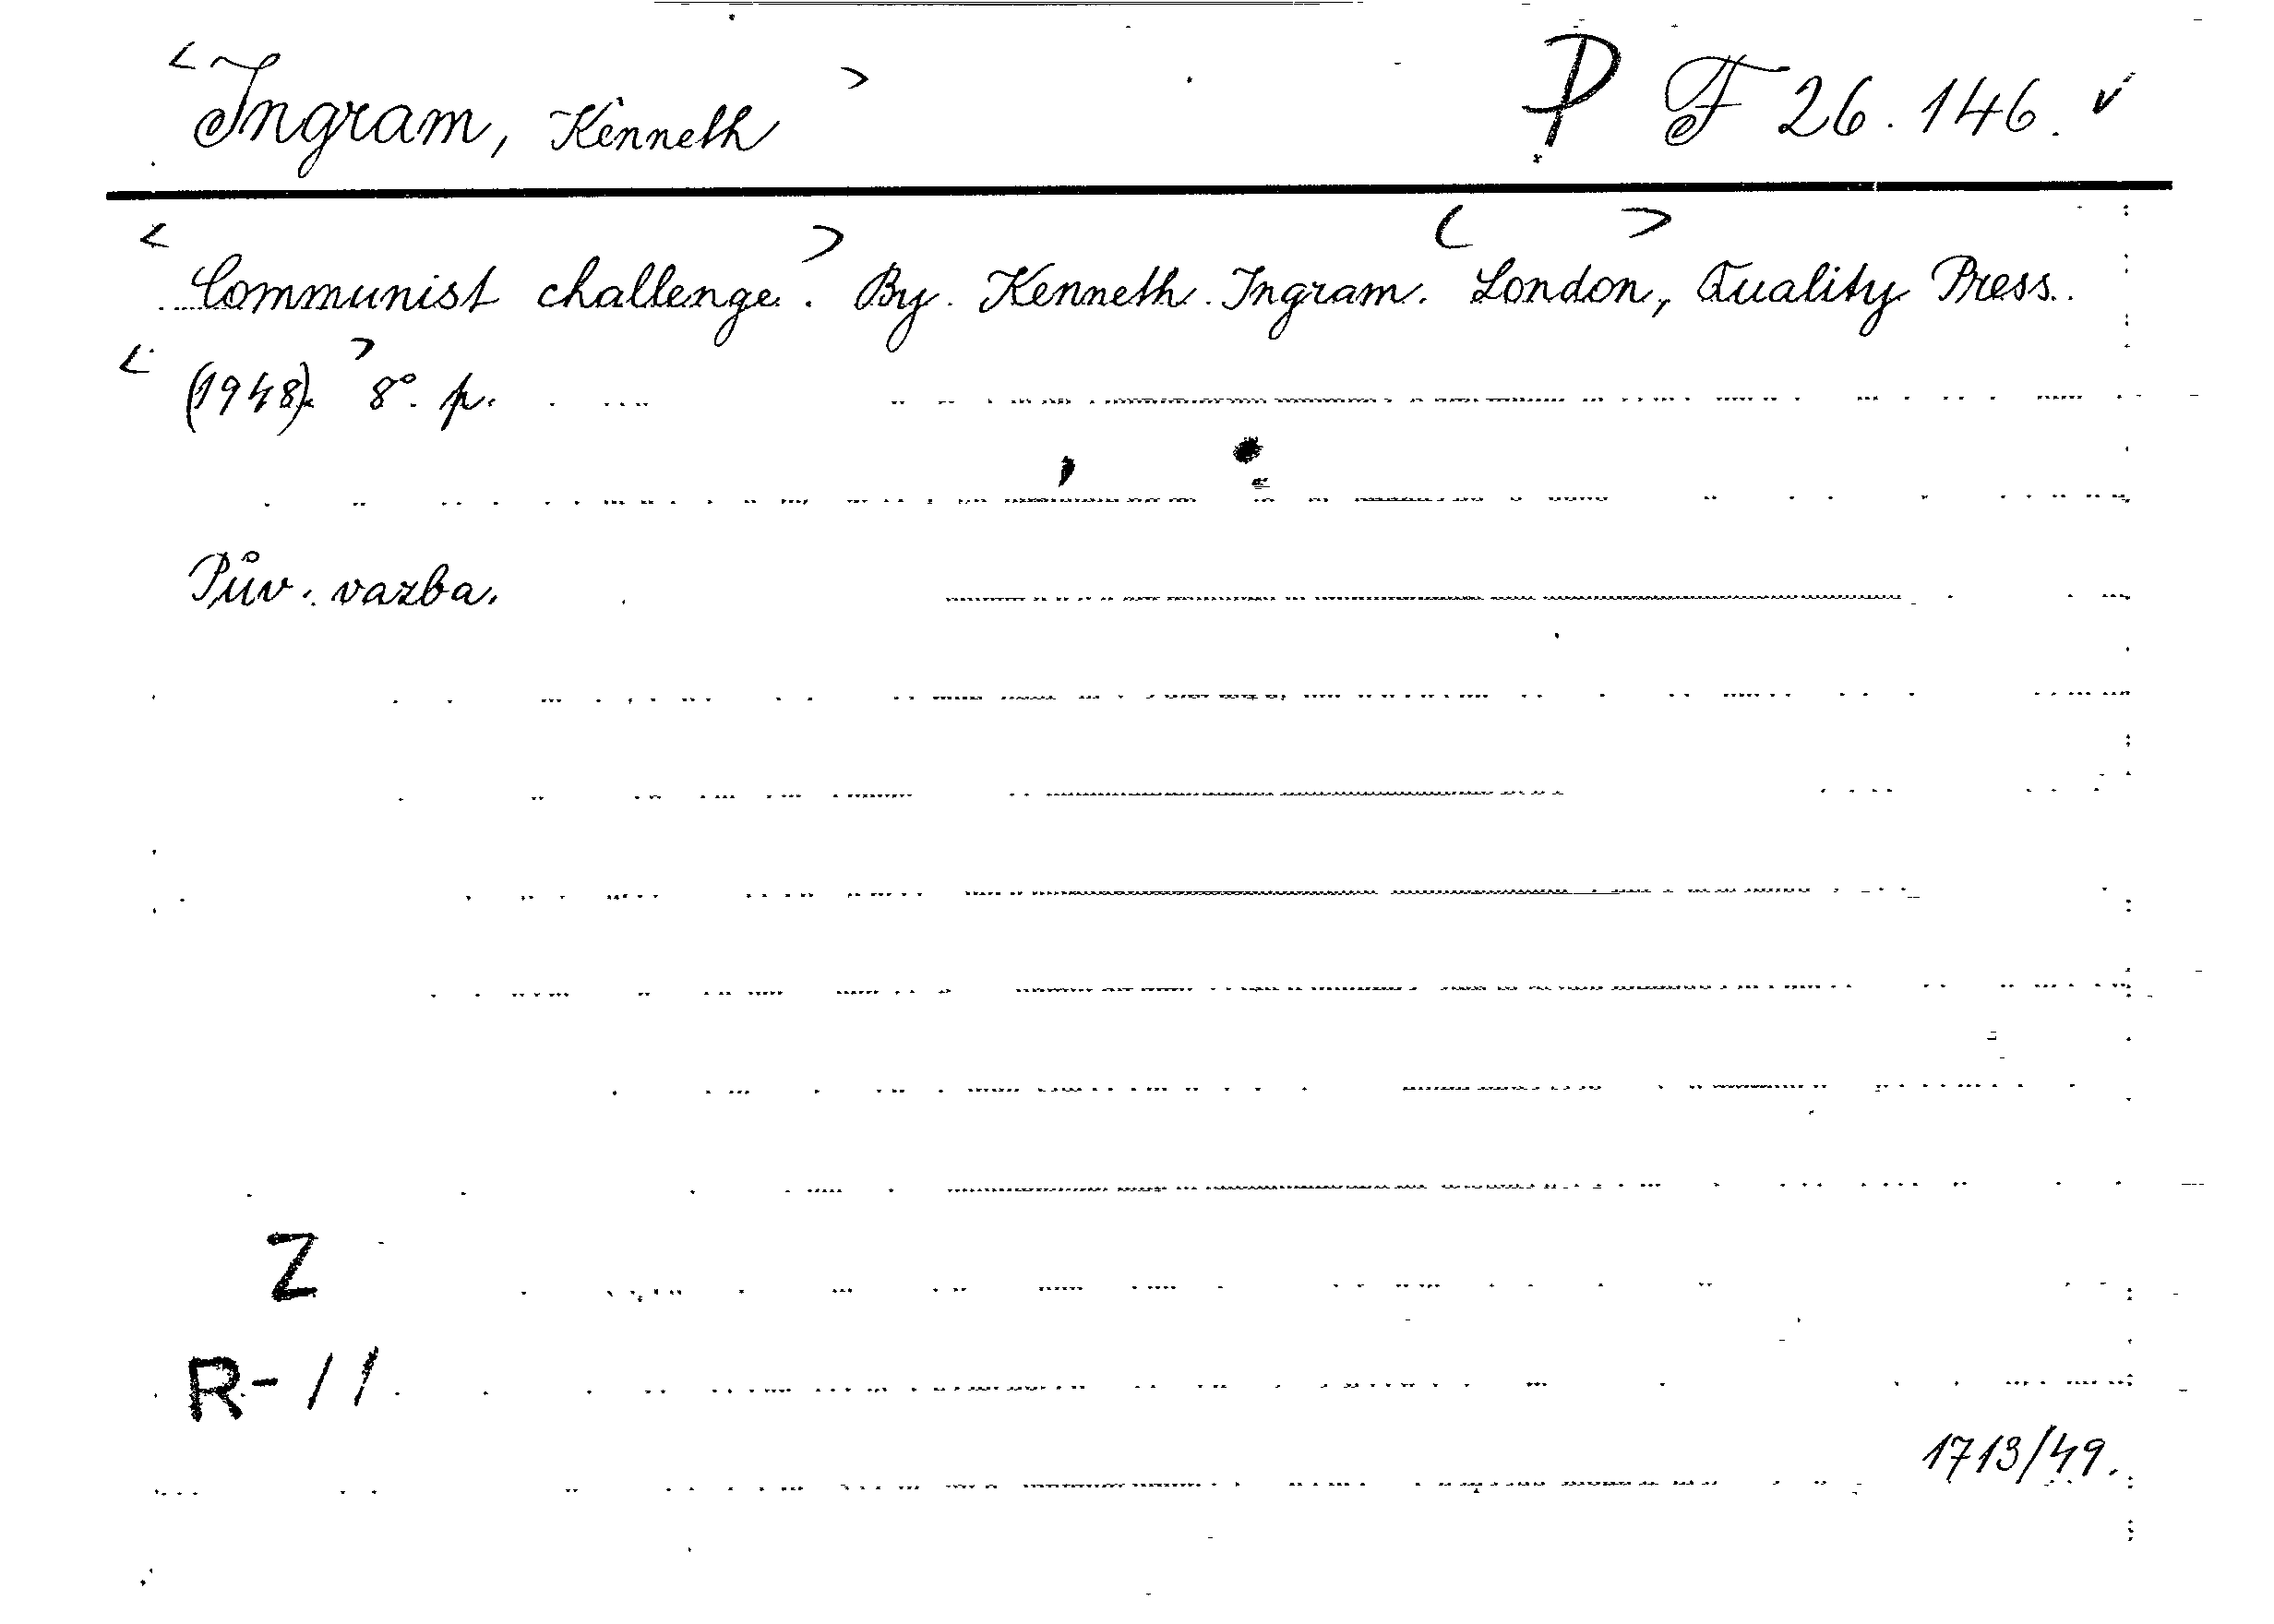 <Ingram, Kenneth> P F 26.146. v
<Communist challenge>. By Kenneth Ingram. <London>, Quality Press.
<(1948).> 8°. p.
Pův. vazba.
Z
R-11
1713/49.